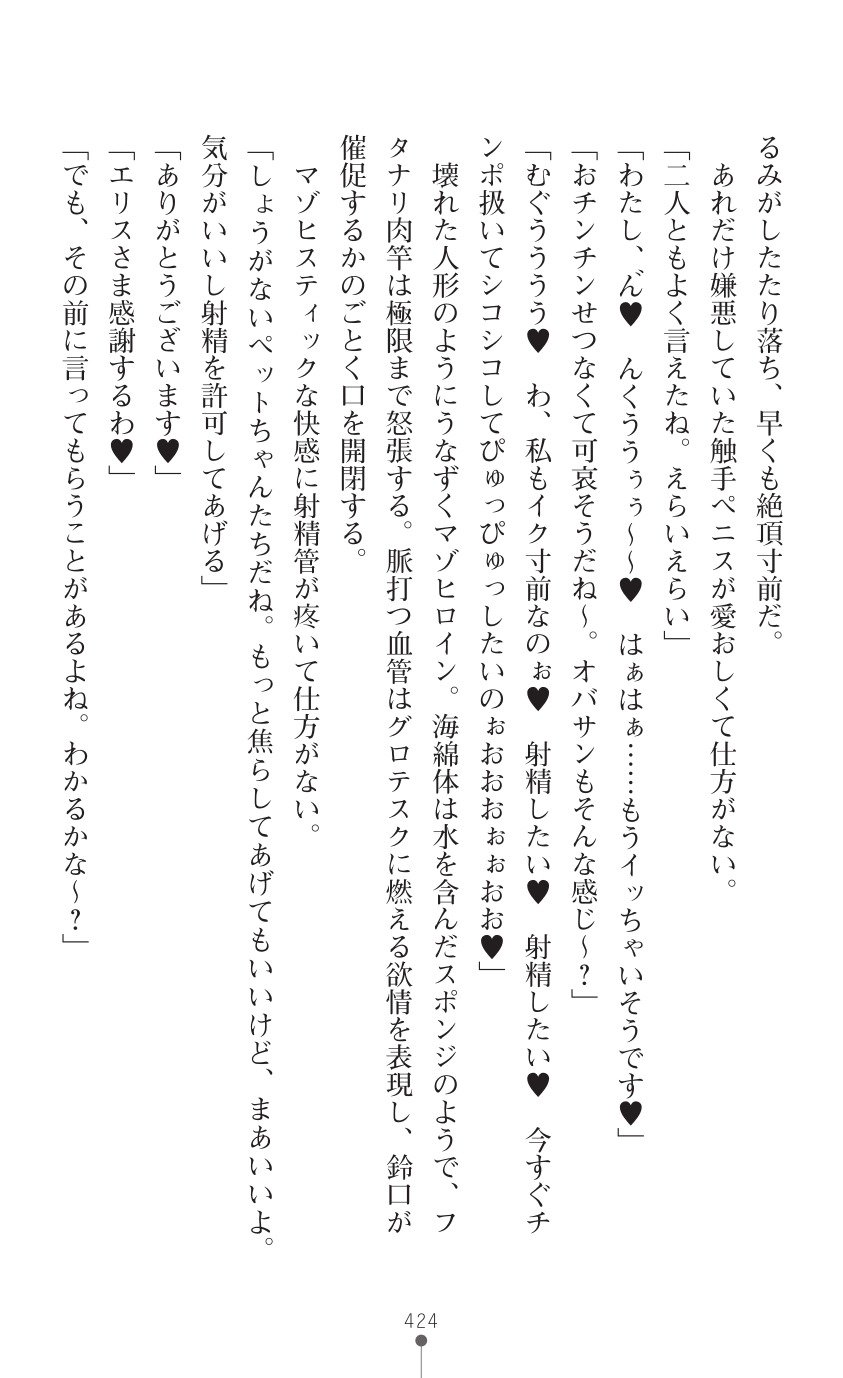 るみがしたたり落ち、早くも絶頂寸前だ。
　あれだけ嫌悪していた触手ペニスが愛おしくて仕方がない。
「二人ともよく言えたね。えらいえらい」
「わたし、ん゛♥　んくううぅぅ～～♥　はぁはぁ……もうイッちゃいそうです♥」
「おチンチンせつなくて可哀そうだね～。オバサンもそんな感じ～？」
「むぐうううう♥　わ、私もイク寸前なのぉ♥　射精したい♥　射精したい♥　今すぐチ
ンポ扱いてシコシコしてぴゅっぴゅっしたいのぉおおおぉぉおお♥」
　壊れた人形のようにうなずくマゾヒロイン。海綿体は水を含んだスポンジのようで、フ
タナリ肉竿は極限まで怒張する。脈打つ血管はグロテスクに燃える欲情を表現し、鈴口が
催促するかのごとく口を開閉する。
　マゾヒスティックな快感に射精管が疼いて仕方がない。
「しょうがないペットちゃんたちだね。もっと焦らしてあげてもいいけど、まあいいよ。
気分がいいし射精を許可してあげる」
「ありがとうございます♥」
「エリスさま感謝するわ♥」
「でも、その前に言ってもらうことがあるよね。わかるかな～？」
424